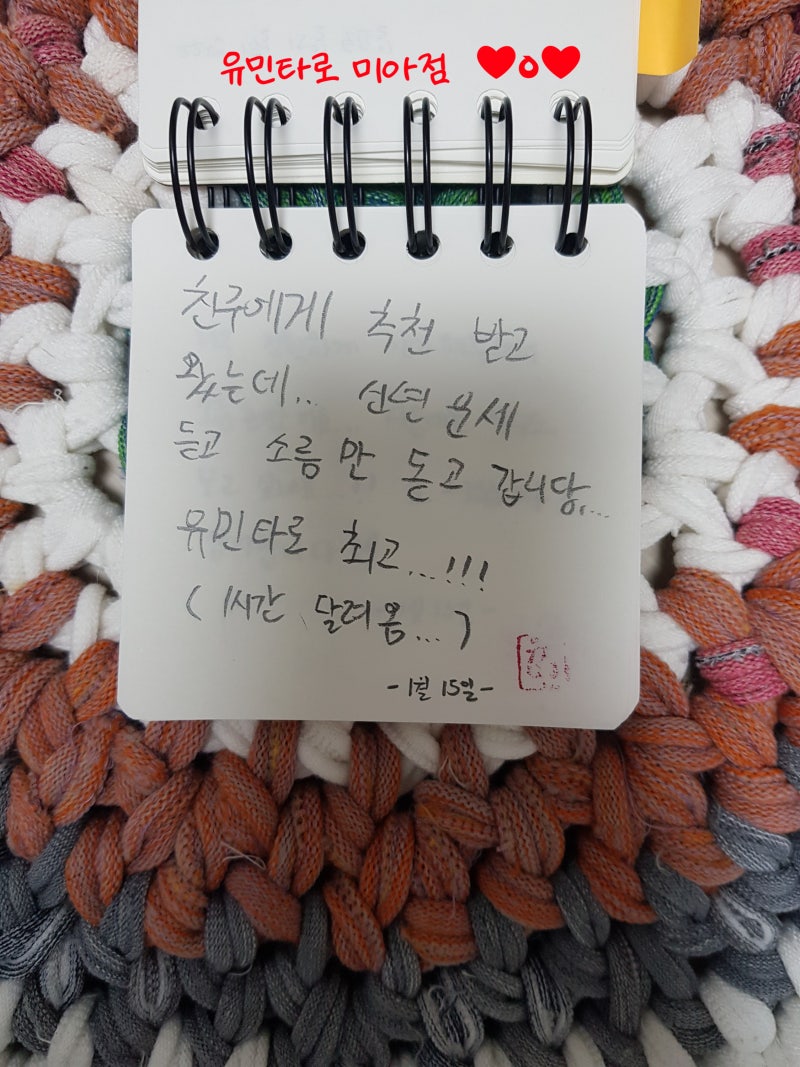 유민타로 미아점 ♥o♥
친구에게 추천 받고
왔는데... 신년운세
듣고 소름만 돋고 갑니당....
유민타로 최고...!!!
( 1시간 달려옴...)
-1월 15일-